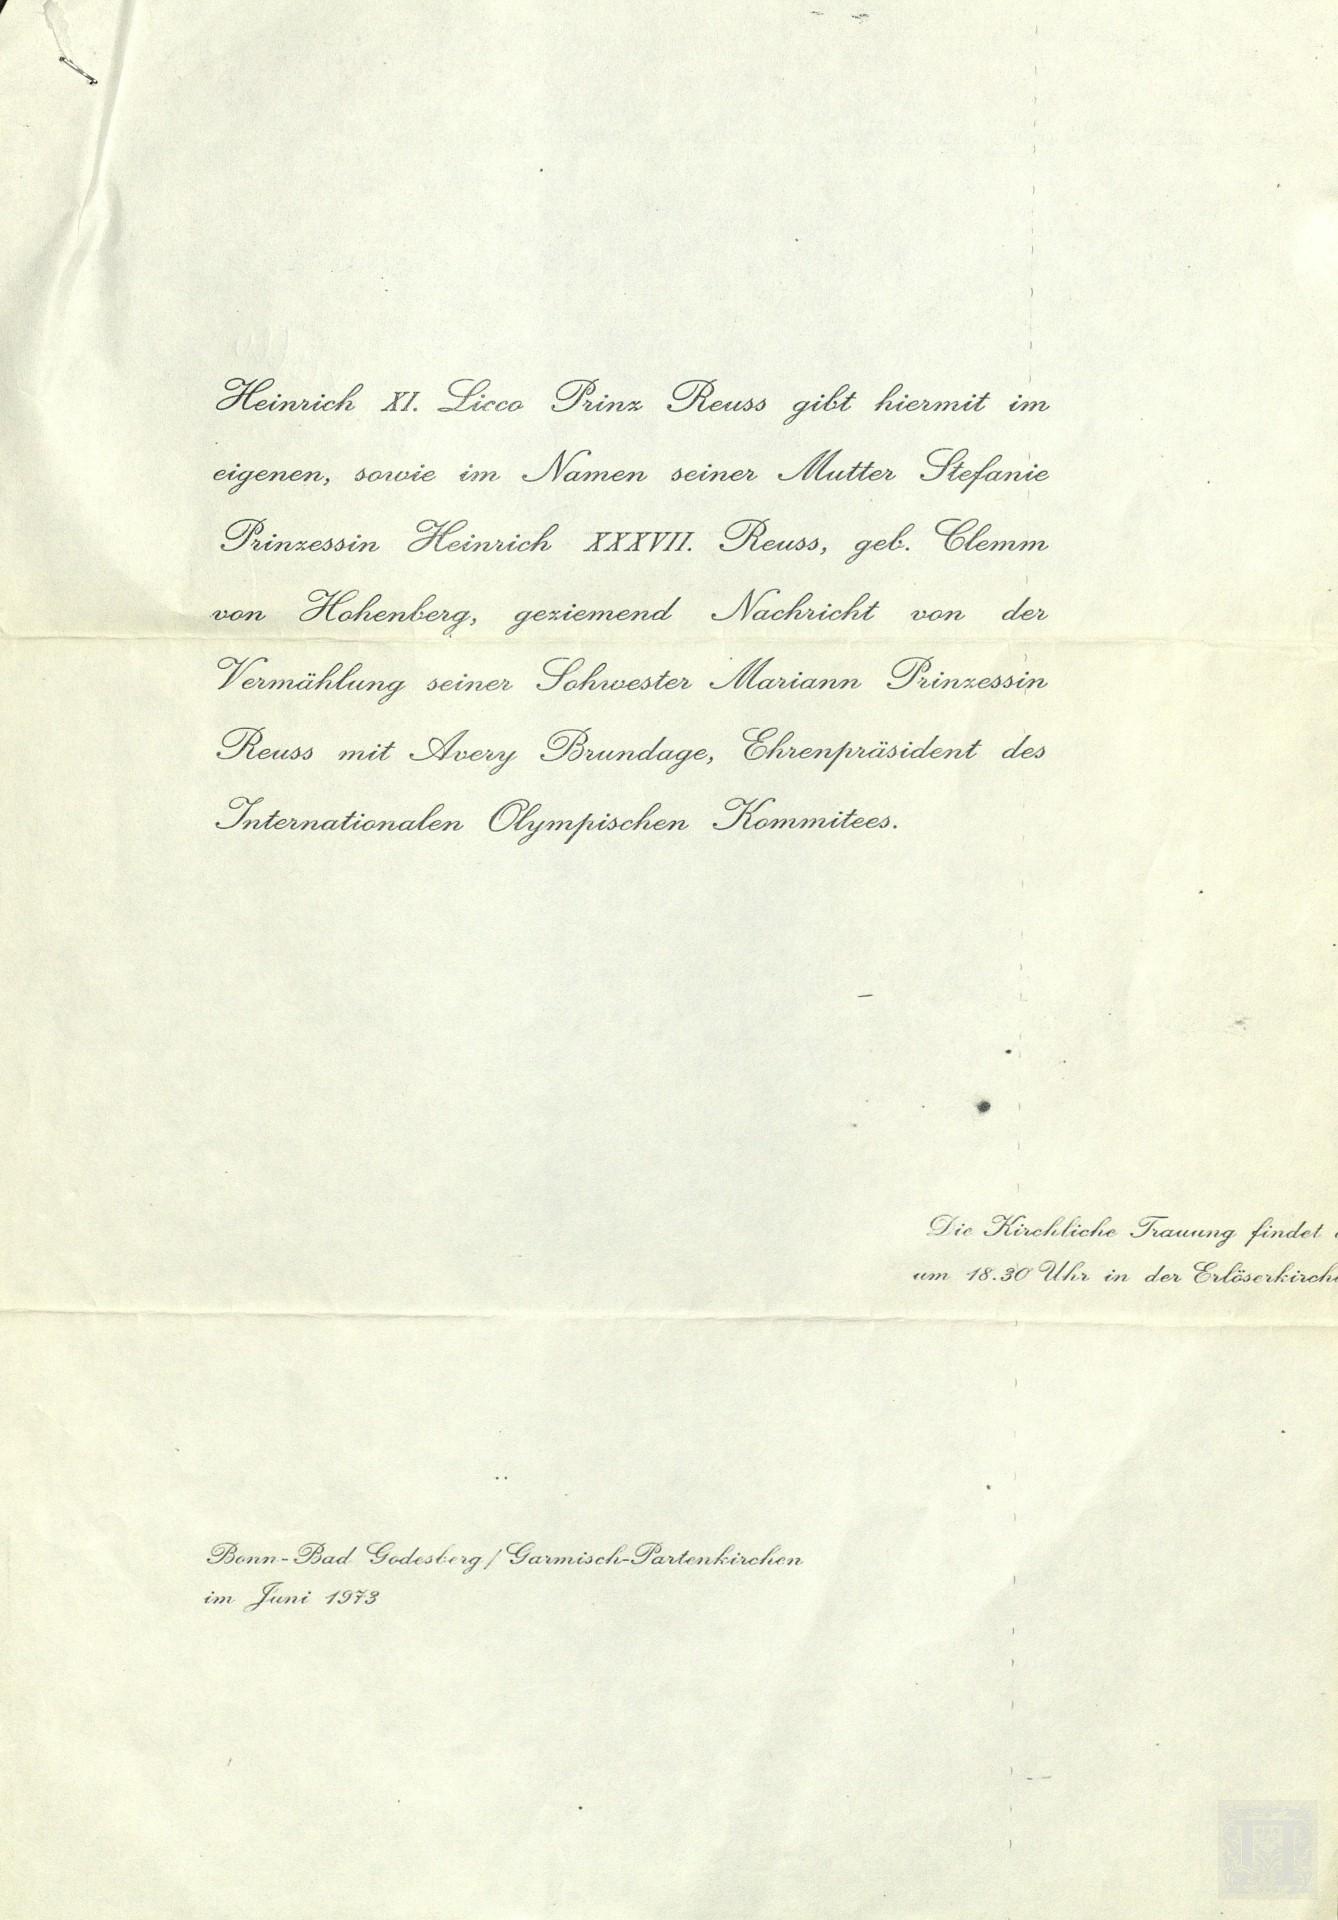 Heinrich XI. Licco Prinz Reuss gibt hiermit im
eigenen, sowie im Namen seiner Mutter Stefanie
Prinzessin Heinrich XXXVII. Reuss, geb. Clemm
von Hohenberg, geziemend Nachricht von der
Vermählung seiner Schwester Mariann Prinzessin
Reuss mit Avery Brundage, Ehrenpräsident des
Internationalen Olympischen Kommitees.
Die Kirchliche Trauung findet
um 18.30 Uhr in der Erlöserkirche
Bonn-Bad Godesberg / Garmisch-Partenkirchen
im Juni 1973